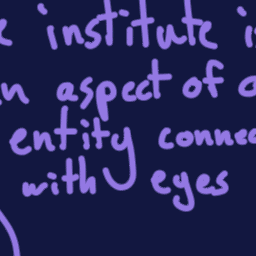 e institute i
n aspect of a
entity connec
with eyes